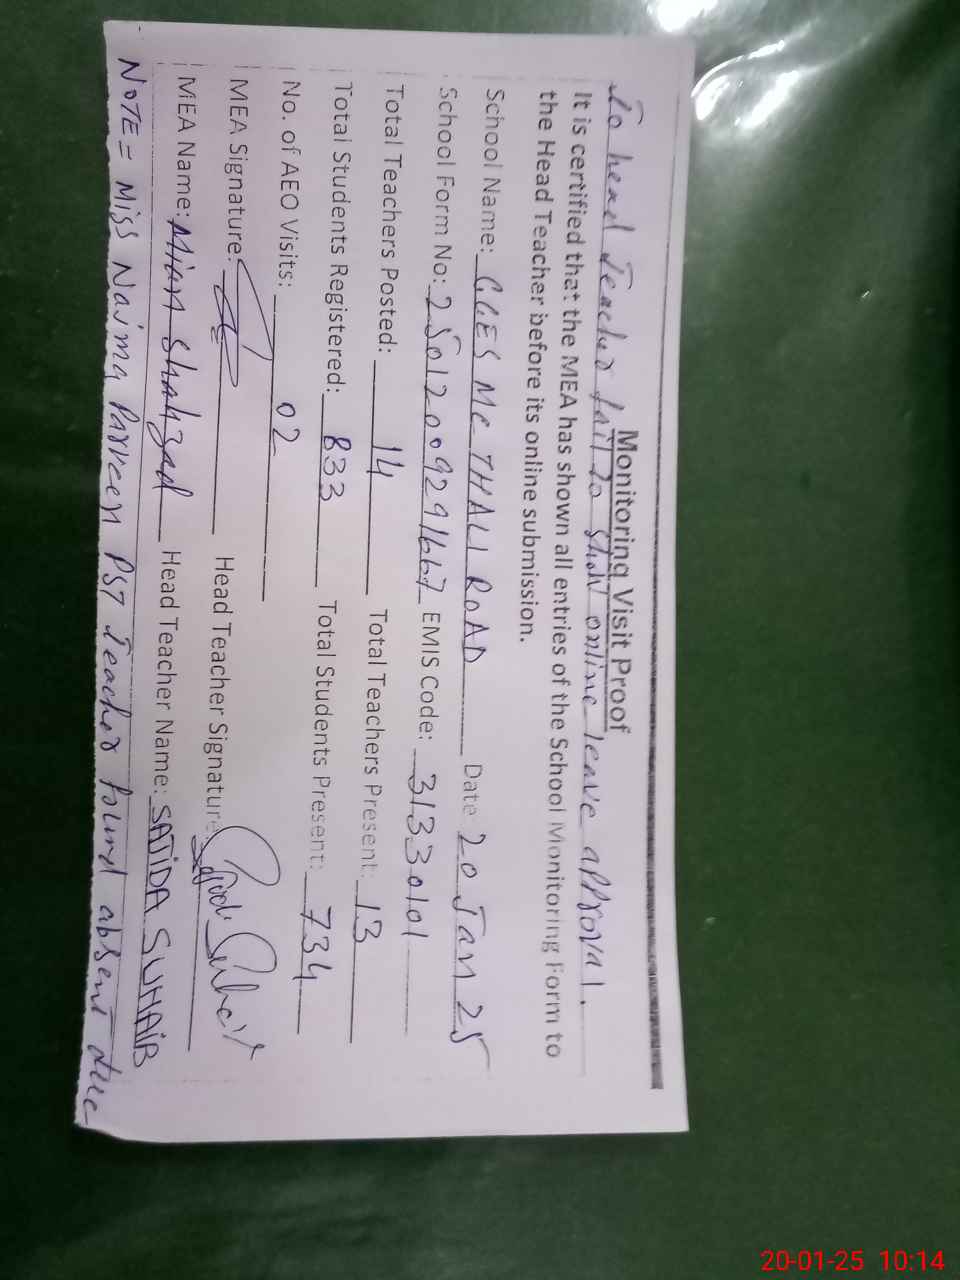 Monitoring Visit Proof
To head Teacher fail to show online leave approval.
It is certified that the MEA has shown all entries of the School Monitoring Form to
the Head Teacher before its online submission.
School Name: GGES MC THALI ROAD Date 20 Jan 25
School Form No: 25012009291667 EMIS Code: 31330101
Total Teachers Posted: 14 Total Teachers Present: 13
Total Students Registered: 833 Total Students Present: 734
No. of AEO Visits: 02
MEA Signature: Head Teacher Signature:
MEA Name: Mian Shahzad Head Teacher Name: SAJIDA SUHAIB
NOTE = Miss Naima Parveen PST Teacher found absent due
20-01-25 10:14